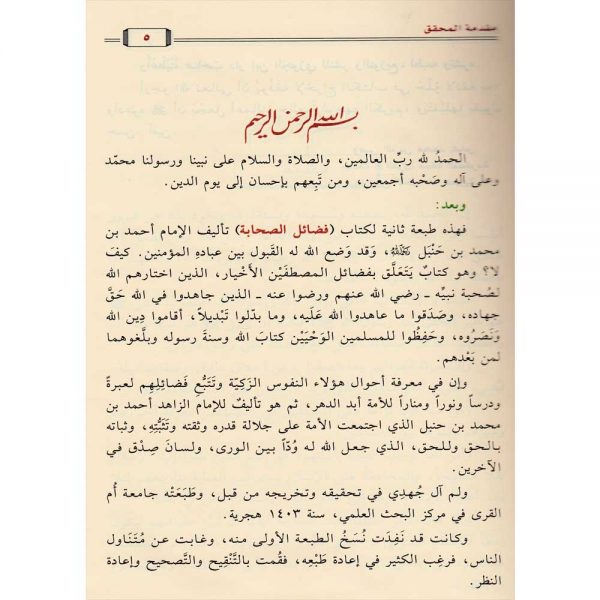 مقدمة المحقق
٥
بسم الله الرحمن الرحيم
الحمدُ لله ربِّ العالمين، والصلاة والسلام على نبينا ورسولنا محمّد
وعلى آله وصَحْبه أجمعين، ومن تَبِعهم بإحسان إلى يوم الدين.
وبعد:
فهذه طبعة ثانية لكتاب (فضائل الصحابة) تأليف الإمام أحمد بن
محمد بن حَنْبَل رحمه الله، وَقد وَضع الله له القَبول بين عباده المؤمنين. كيفَ
لا؟ وهو كتابٌ يَتَعَلَّق بفضائل المصطفَيْن الأَخْيار، الذين اختارهم الله
لصُحبة نبيِّه ـ رضي الله عنهم ورضوا عنه ـ الذين جاهدوا في الله حَقَّ
جهاده، وصَدَقوا ما عاهدوا الله عَلَيه، وما بدّلوا تَبْديلاً، أقاموا دِين الله
وَنَصَرُوه، وحَفِظُوا للمسلمين الوَحْيَيْن كتابَ الله وسنةَ رسوله وبلَّغوهما
لمن بَعْدهم.
وإن في معرفة أحوال هؤلاء النفوس الزَكِيَّة وتَتَبُّع فَضائلِهم لعبرةً
ودرساً ونوراً ومناراً للأمة أبد الدهر، ثم هو تأليفٌ للإمام الزاهد أحمد بن
محمد بن حنبل الذي اجتمعت الأمة على جلالة قدره وثقته وتَثَبُّتِه، وثباته
بالحق وللحق، الذي جعل الله له وُدّاً بين الورى، ولسانَ صِدْق في
الآخرين.
ولم آل جُهدِي في تحقيقه وتخريجه من قبل، وطَبَعَتْه جامعة أُم
القرى في مركز البحث العلمي، سنة ١٤٠٣ هجرية.
وكانت قد نَفِدَت نُسَخُ الطبعة الأولى منه، وغابت عن مُتَنَاول
الناس، فرغِب الكثير في إعادة طَبْعِه، فقُمت بالتَّنْقِيح والتَّصحيح وإعادة
النظر.